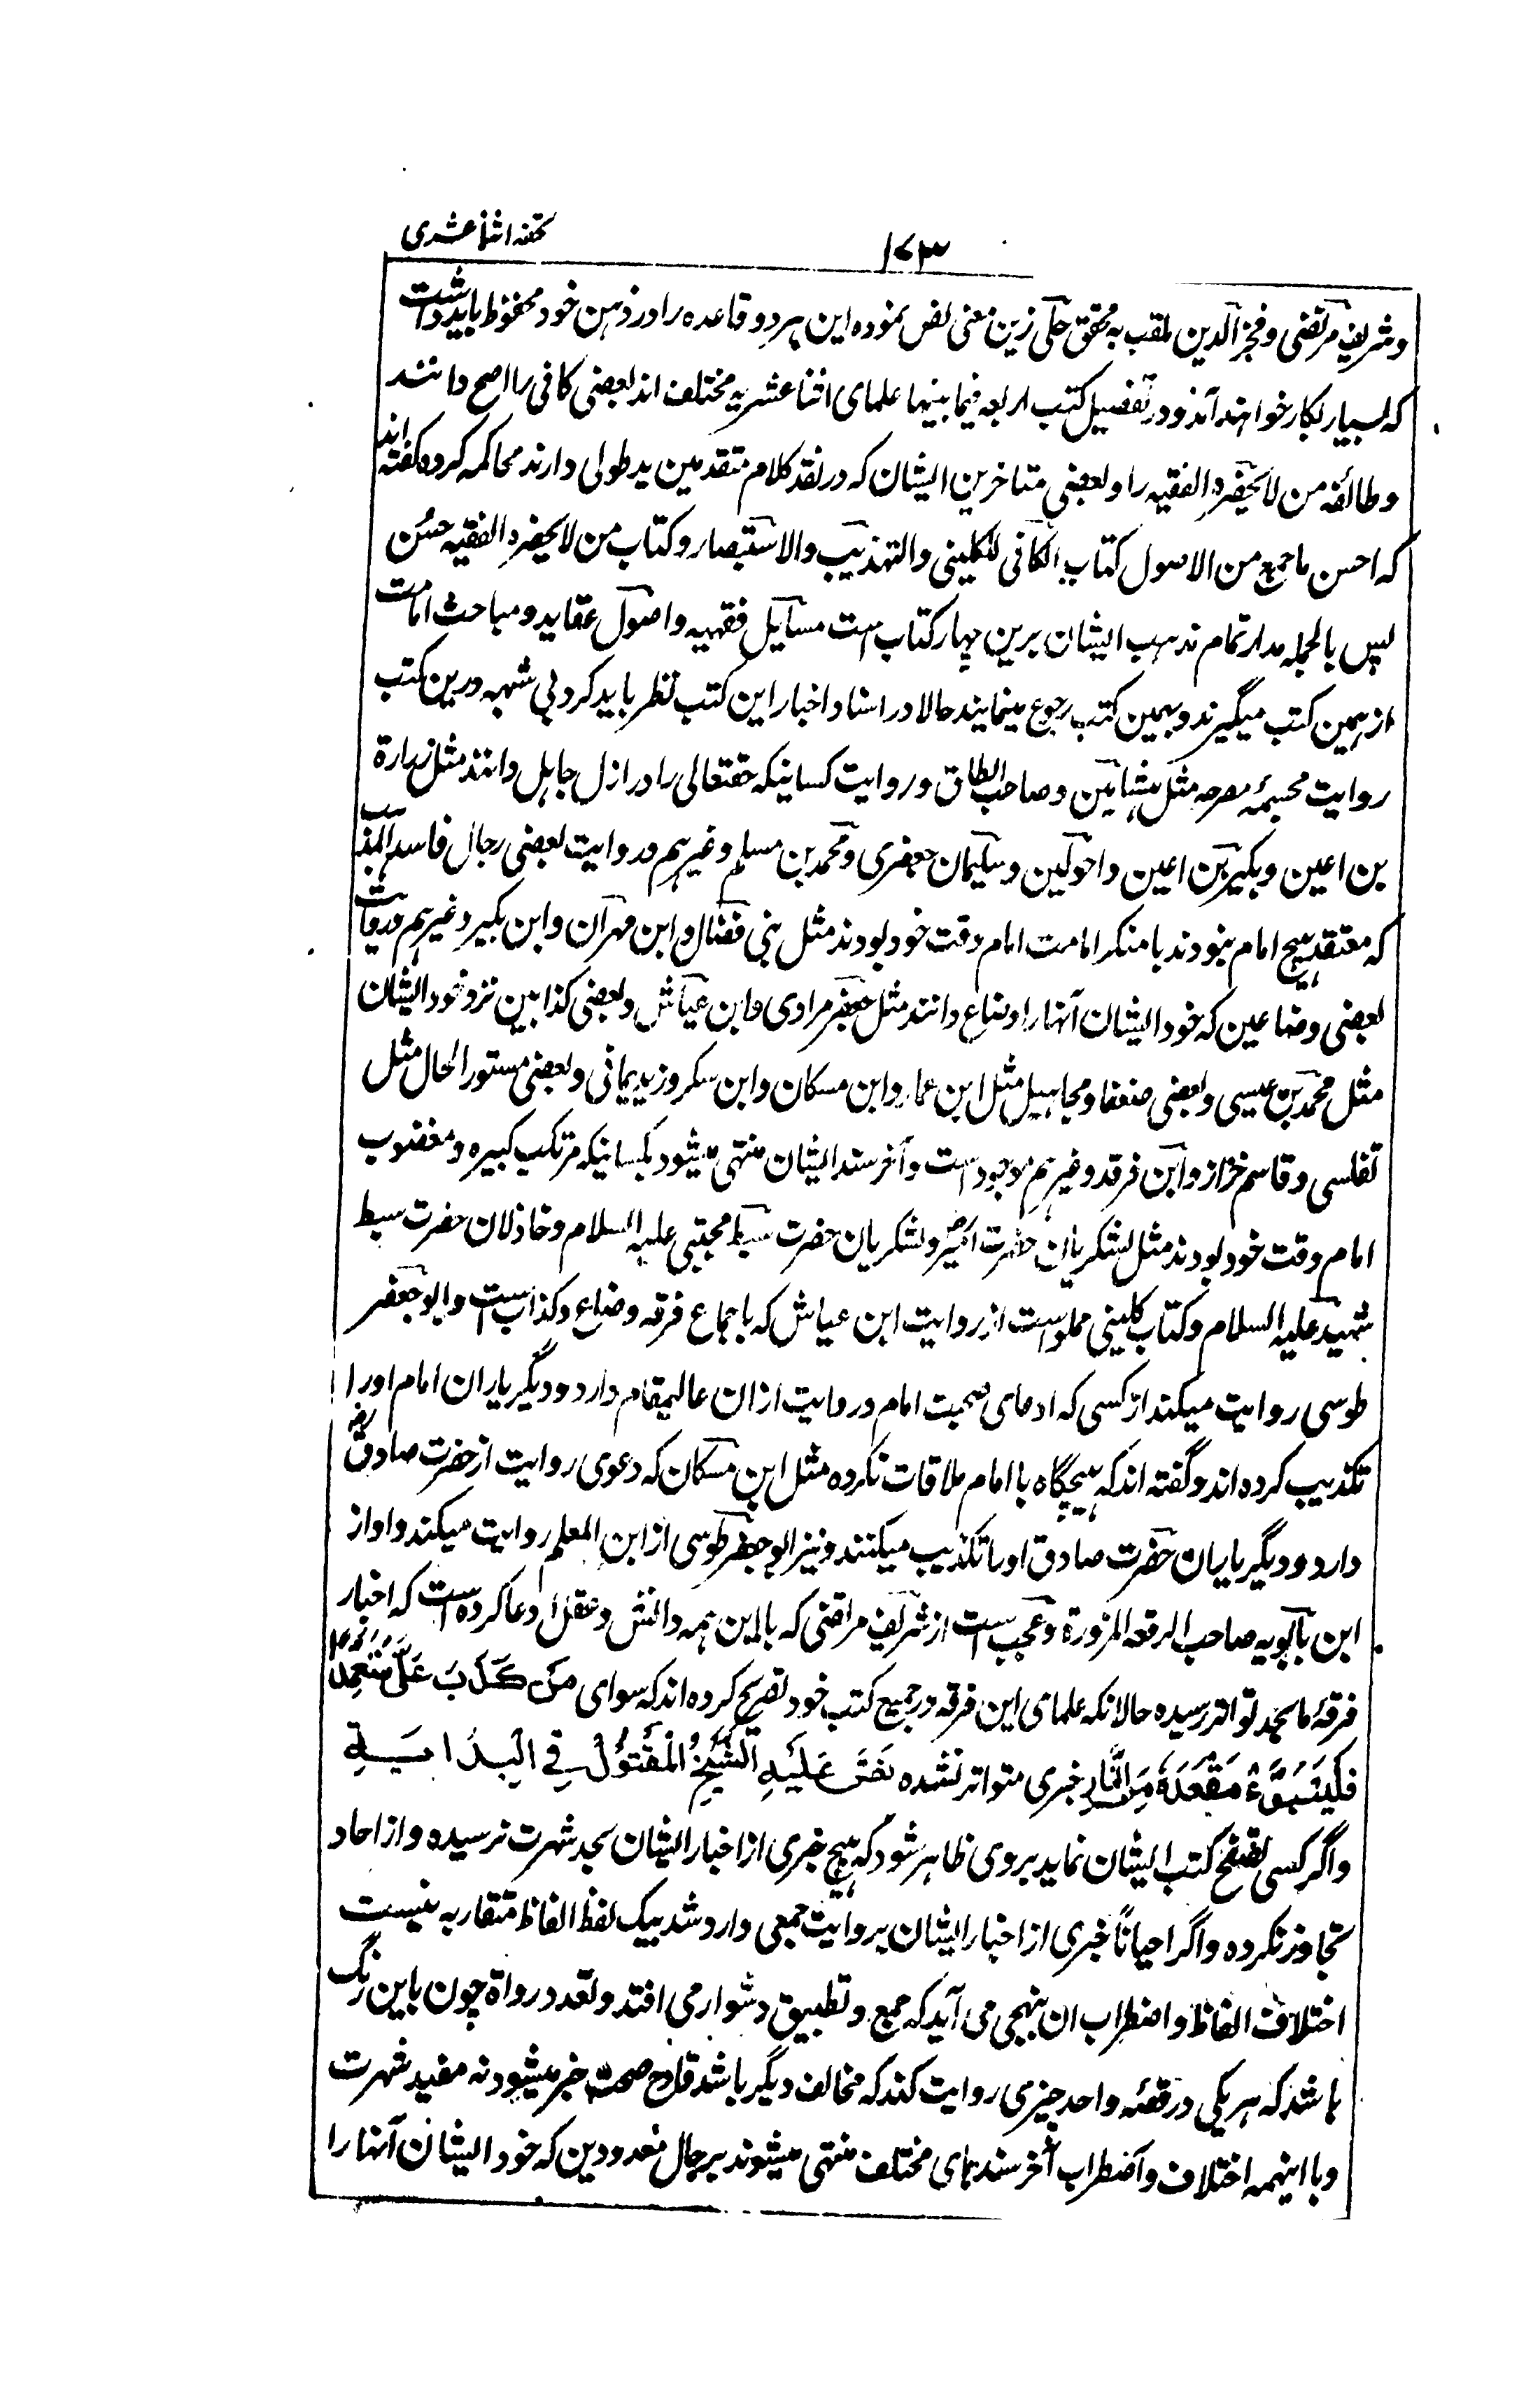 تحفه اثنا عشری
۱۷۳
وشریف مرتضی وفخر الدین ملقب به محقق حلی زین معنی نص نموده این هر دو قاعده را در ذهن خود محفوظ باید داشت
که بسیار بکار خواهند آمد و در تفضیل کتب اربعه فیما بینها علمای اثنا عشریه مختلف اند بعضی کافی را اصح دانند
و طائفه من لا یحضره الفقیه را و بعضی متاخرین ایشان که در نقد کلام متقدمین ید طولی دارند محاکمه کرده گفته اند
که احسن ما جمع من الاصول کتاب الکافی للکلینی والتهذیب والاستبصار و کتاب من لا یحضره الفقیه حسن
پس بالجمله مدار تمام مذهب ایشان برین چهار کتاب است مسایل فقهیه و اصول عقاید و مباحث امامت
از همین کتب میگیرند و بهمین کتب رجوع مینمایند حالا در اسناد اخبار این کتب نظر باید کرد بی شبهه درین کتب
روایت مجسمهٔ مصرحه مثل هشامین و صاحب الطاق و روایت کسانیکه حقتعالی را در ازل جاهل دانند مثل زرارة
بن اعین و بکیر بن اعین و احولین و سلیمان جعفری و محمد بن مسلم و غیرهم و روایت بعضی رجال فاسد المذهب
که معتقد هیچ امام نبودند یا منکر امامت امام وقت خود بودند مثل بنی فضال و ابن مهران و ابن بکیر و غیرهم و روایت
بعضی وضاعین که خود ایشان آنها را وضاع دانند مثل جعفر مرادی و ابن عیاش و بعضی کذابین نزد خود ایشان
مثل محمد بن عیسی و بعضی ضعفا و مجاهیل مثل ابن عمار و ابن مسکان و ابن سکر و زید یمانی و بعضی مستور الحال مثل
تفلسی و قاسم خزاز و ابن فرقد و غیرهم موجود است و آخر سند ایشان منتهی میشود بکسانیکه مرتکب کبیره و مغضوب
امام وقت خود بودند مثل لشکریان حضرت امیر و لشکریان حضرت سبط مجتبی علیه السلام و خاذلان حضرت سبط
شهید علیه السلام و کتاب کلینی مملو است از روایت ابن عیاش که باجماع فرقه وضاع و کذاب است و ابو جعفر
طوسی روایت میکند از کسی که ادعای صحبت امام و روایت ازان عالیمقام دارد و دیگر یاران امام او را
تکذیب کرده اند و گفته اند که هیچگاه با امام ملاقات نکرده مثل ابن مسکان که دعوی روایت از حضرت صادق رض
دارد و دیگر یاران حضرت صادق او را تکذیب میکنند و نیز ابو جعفر طوسی از ابن المعلم روایت میکند و او از
ابن بابویه صاحب الرقعه المزورة و عجب است از شریف مرتضی که با این همه دانش و عقل ادعا کرده است که اخبار
فرقهٔ ما بحد تواتر رسیده حالانکه علمای این فرقه در جمیع کتب خود تصریح کرده اند که سوای مَنْ کَذَبَ عَلَیَّ مُتَعَمِّدًا
فَلْیَتَبَوَّءْ مَقْعَدَهُ مِنَ النَّارِ خبری متواتر نشده نَصَّ عَلَیْهِ الشَّیْخُ الْمَقْتُوْلُ فِی الْبِدَایَةِ
و اگر کسی تفحص کتب ایشان نماید بر وی ظاهر شود که هیچ خبری از اخبار ایشان بحد شهرت نرسیده و از احاد
تجاوز نکرده و اگر احیاناً خبری از اخبار ایشان بروایت جمعی وارد شد بیک لفظ الفاظ متقاربه نیست
اختلاف الفاظ و اضطراب ان بنهجی می آید که جمع و تطبیق دشوار می افتد و تعدد رواة چون باین رنگ
باشد که هر یکی در قصهٔ واحد چیزی روایت کند که مخالف دیگر باشد قادح صحت خبر میشود نه مفید شهرت
و با اینهمه اختلاف و اضطراب آخر سندهای مختلف منتهی میشوند برجال معدودین که خود ایشان آنها را